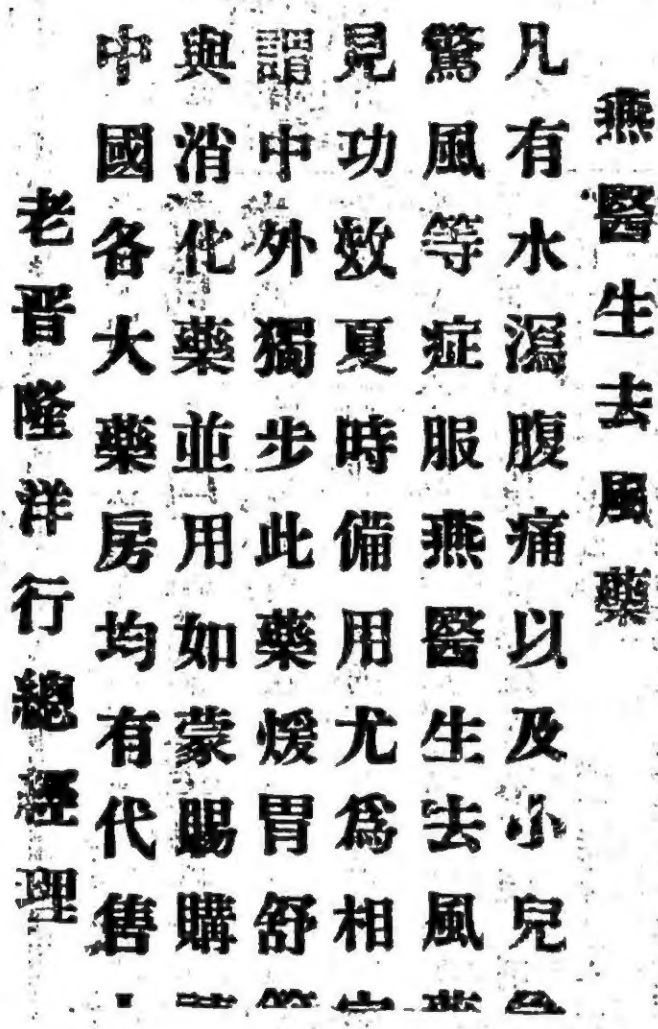 燕醫生去風藥
凡有水瀉腹痛以及小兒
驚風等症服燕醫生去風
見功效夏時備用尤爲相
謂中外獨步此藥煖胃舒
與消化藥並用如蒙賜購
中國各大藥房均有代售
老晋隆洋行總經理